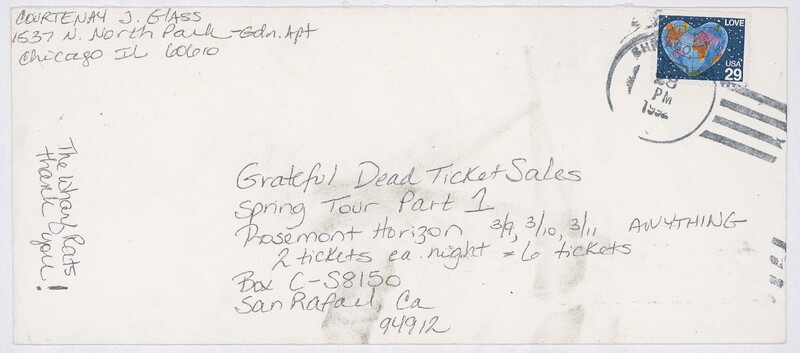 COURTENAY J. GLASS
1537 N. North Park - Gdn. Apt
Chicago IL 60610
LOVE
USA
29
PM
1992
The Wharf Rats
thank you!
Grateful Dead Ticket Sales
Spring Tour Part 1
Rosemont Horizon 3/9, 3/10, 3/11 ANYTHING
2 tickets ea. night = 6 tickets
Box C-S8150
San Rafael, Ca
94912